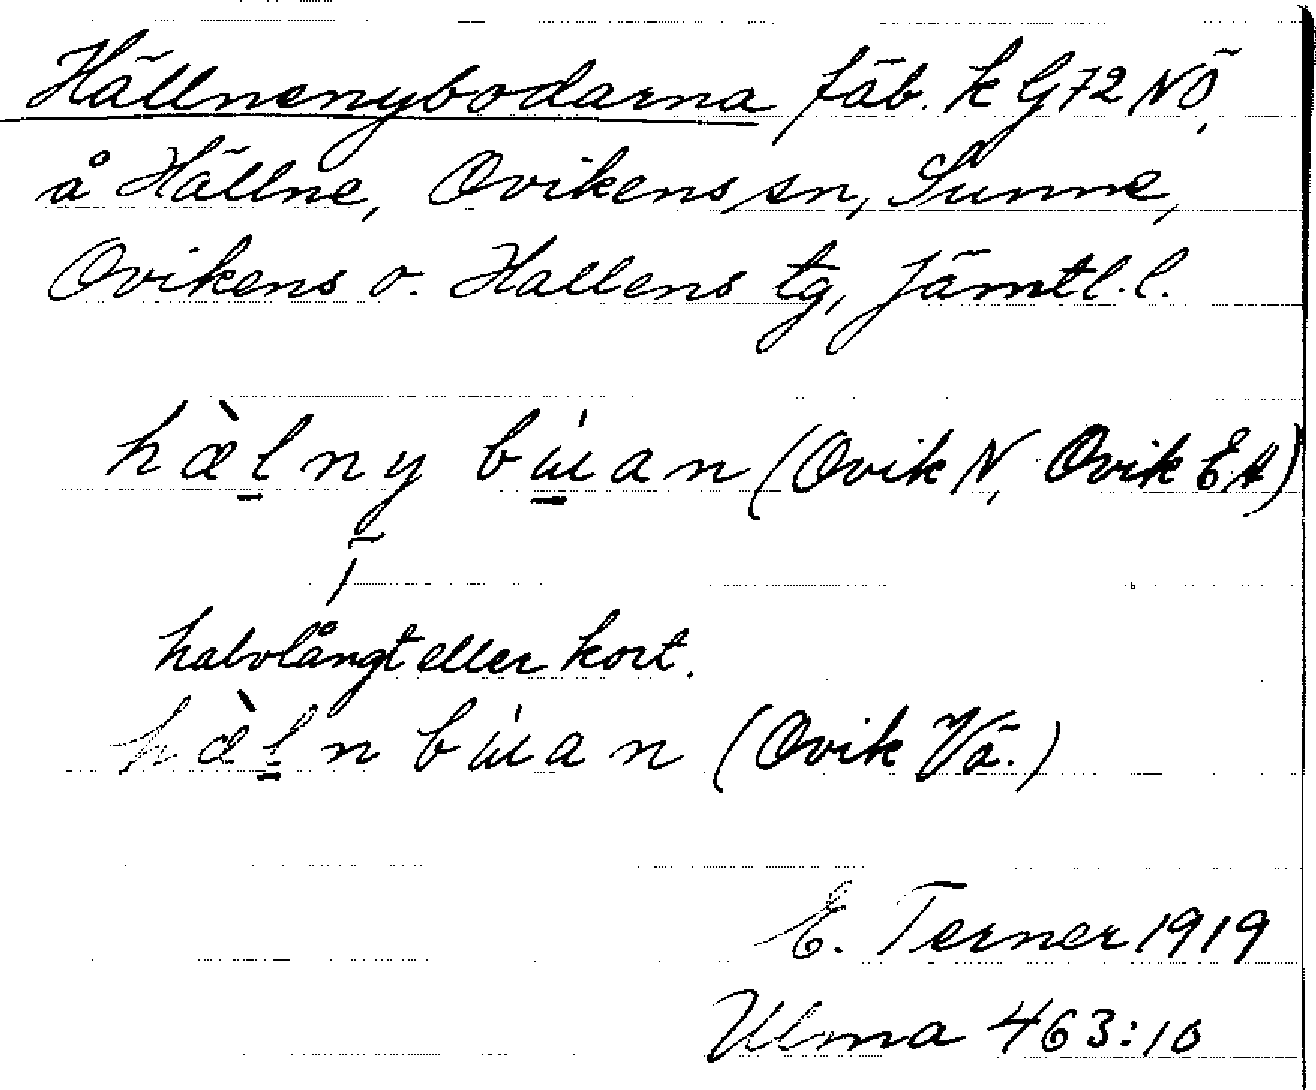 Hällnenybodarna fäb. k G72 NÖ,
å Hällne, Ovikens sn, Sunne,
Ovikens o. Hallens tg, Jämtl. l.
hæ̀l̠ny bu̠̍an (Ovik N, Ovik EA)
halvlångt eller kort.
hæ̀l̠n bu̍an (Ovik Vä.)
E. Terner 1919
Ulma 463:10